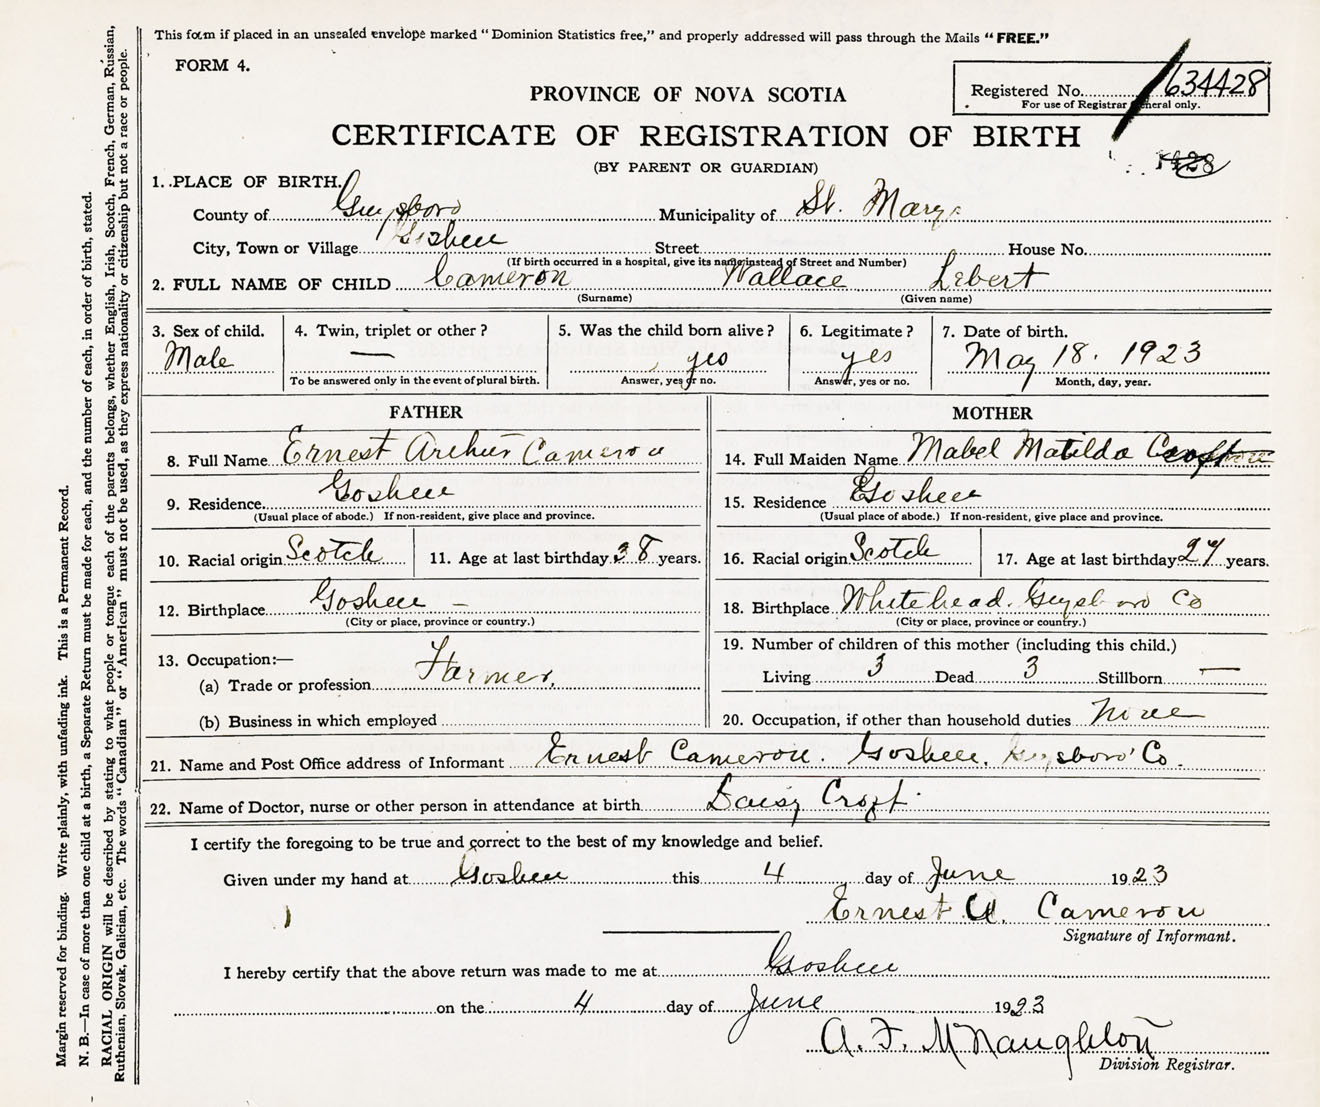 This form if placed in an unsealed envelope marked "Dominion Statistics free," and properly addressed will pass through the Mails "FREE."
FORM 4.
Registered No. 634428
For use of Registrar General only.
PROVINCE OF NOVA SCOTIA
CERTIFICATE OF REGISTRATION OF BIRTH
(BY PARENT OR GUARDIAN)
1. PLACE OF BIRTH.
County of Guysboro Municipality of St. Marys
City, Town or Village Goshen Street House No.
(If birth occurred in a hospital, give its name instead of Street and Number)
2. FULL NAME OF CHILD Cameron Wallace Lebert
(Surname) (Given name)
3. Sex of child. 4. Twin, triplet or other? 5. Was the child born alive? 6. Legitimate? 7. Date of birth.
Male — yes yes May 18. 1923
To be answered only in the event of plural birth. Answer, yes or no. Answer, yes or no. Month, day, year.
FATHER
8. Full Name Ernest Arthur Cameron
9. Residence Goshen
(Usual place of abode.) If non-resident, give place and province.
10. Racial origin Scotch 11. Age at last birthday 38 years.
12. Birthplace Goshen –
(City or place, province or country.)
13. Occupation:—
(a) Trade or profession Farmer,
(b) Business in which employed
MOTHER
14. Full Maiden Name Mabel Matilda
15. Residence Goshen
(Usual place of abode.) If non-resident, give place and province.
16. Racial origin Scotch 17. Age at last birthday 27 years.
18. Birthplace Whitehead. Guysboro Co
(City or place, province or country.)
19. Number of children of this mother (including this child.)
Living 3 Dead 3 Stillborn —
20. Occupation, if other than household duties None
21. Name and Post Office address of Informant Ernest Cameron. Goshen, Guysboro' Co.
22. Name of Doctor, nurse or other person in attendance at birth Daisy Croft
I certify the foregoing to be true and correct to the best of my knowledge and belief.
Given under my hand at Goshen this 4 day of June 1923
Ernest A. Cameron
Signature of Informant.
I hereby certify that the above return was made to me at Goshen
on the 4 day of June 1923
A. F. McNaughton
Division Registrar.
Margin reserved for binding. Write plainly, with unfading ink. This is a Permanent Record.
N. B.—In case of more than one child at a birth, a Separate Return must be made for each, and the number of each, in order of birth, stated.
RACIAL ORIGIN will be described by stating to what people or tongue each of the parents belongs, whether English, Irish, Scotch, French, German, Russian,
Ruthenian, Slovak, Galician, etc. The words "Canadian" or "American" must not be used, as they express nationality or citizenship but not a race or people.